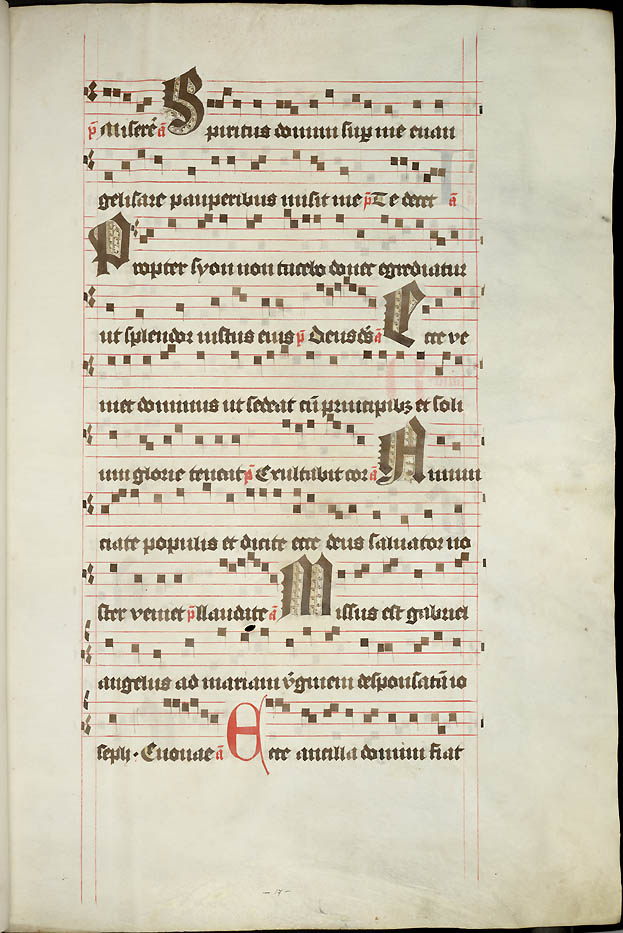 p̄ Miserē ā Spiritus domini sup me euan
gelisare pauperibus misit me p̄ Te decet ā
Propter syon non tacebo donec egrediatur
ut splendor iustus eius p̄ Deus ā Ecce ve
niet dominus ut sedeat cū principibꝫ et soli
um glorie teneat p̄ Exultabit cor ā Annun
ciate populis et dicite ecce deus saluator no
ster veniet p̄ Llaudate ā Missus est gabriel
angelus ad mariam v̄ginem desponsatā io
seph · Euouae ā Ecce ancilla domini fiat
- 17 -